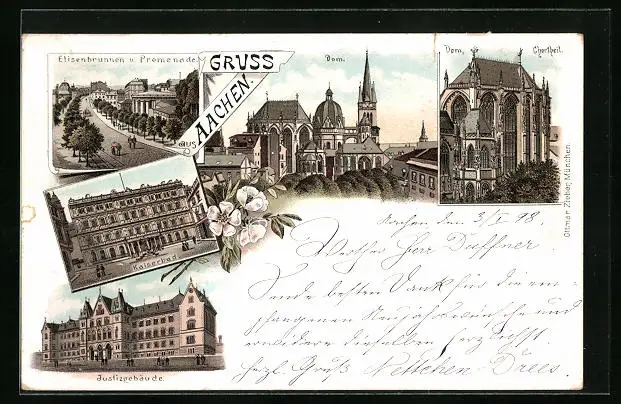 Elisenbrunnen u. Promenade.
GRUSS
aus AACHEN.
Dom.
Dom, Chortheil.
Kaiserbad
Justizgebäude.
Ottmar Zieher, München.
Aachen den 3/I 98.
Werther Herr Duffner.
Sende besten Dank für die em-
pfangenen Neujahrswünsche und
erwidere dieselben herzlichst.
Herzl. Gruß Nettchen Drees.